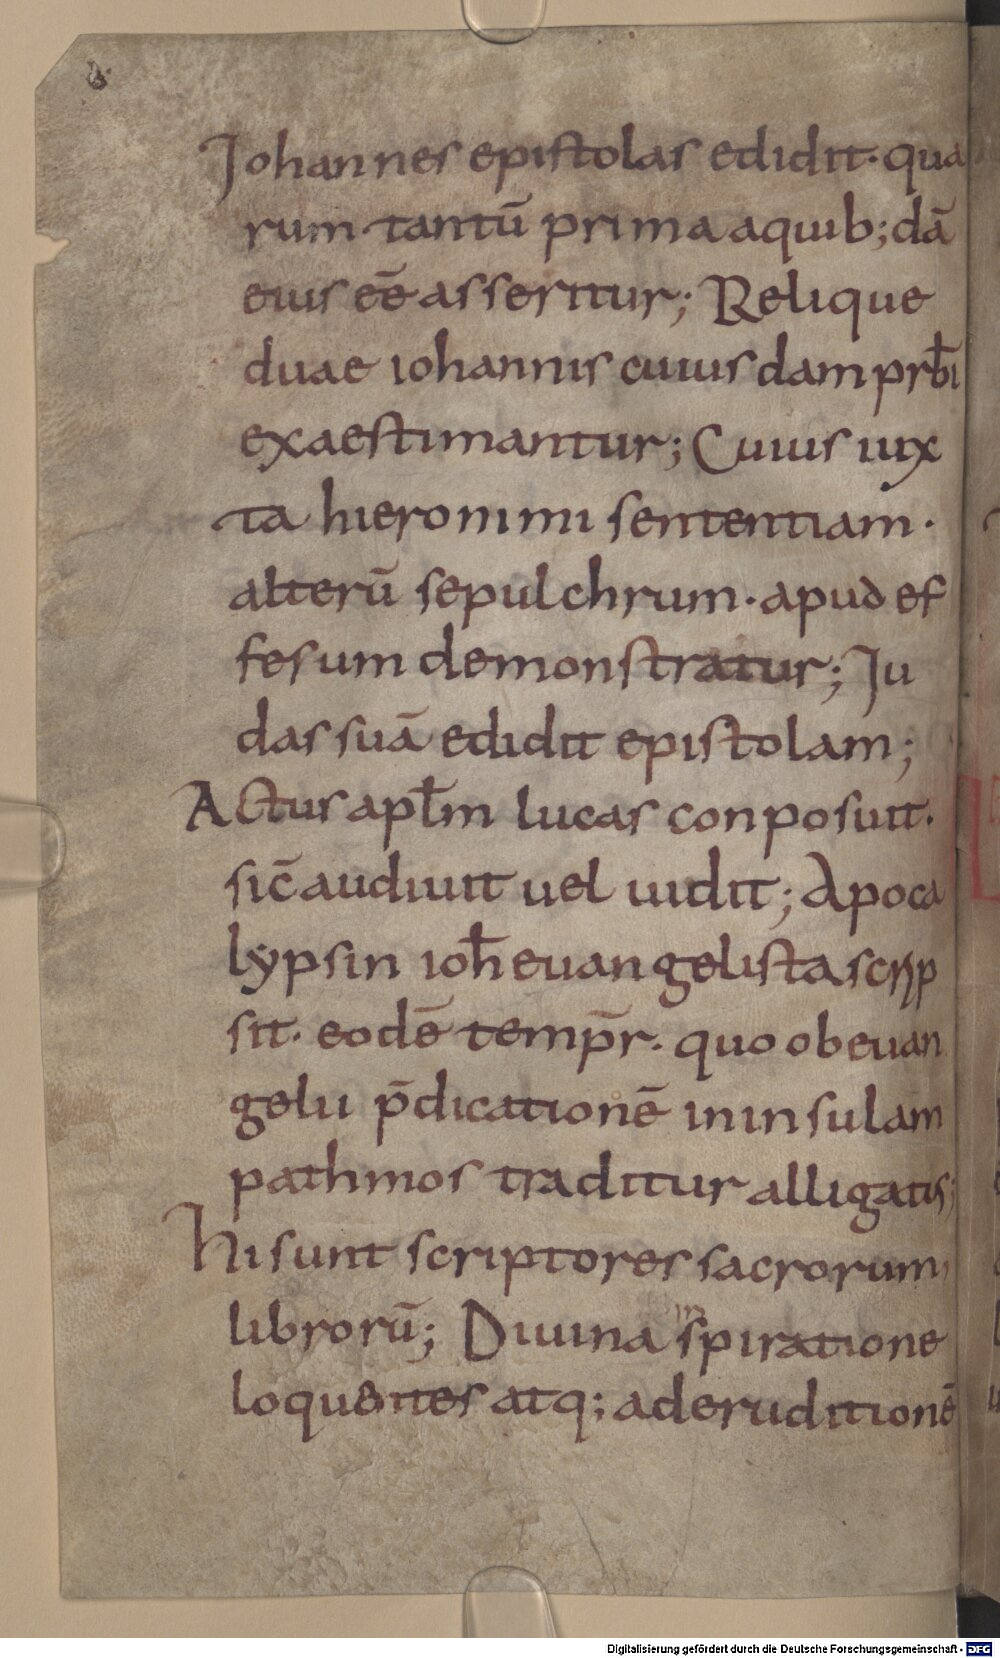 Johannes epistolas edidit· qua
rum tantū prima a quib; dā
eius eē asseritur; Relique
duae iohannis cuiusdam prb̄i
exaestimantur; Cuius iux
ta hieronimi sententiam·
alterū sepulchrum· apud ef
fesum demonstratur; Ju
das suā edidit epistolam;
Actus apl̄m lucas conposuit·
sic̄ audiuit uel uidit; Apoca
lypsin ioh̄ euangelista scrip
sit· eodē temp̄r· quo ob euan
gelii p̄dicationē in insulam
pathmos traditur alligatus;
Hi sunt scriptores sacrorum
librorū; Diuina inspiratione
loquentes atq; ad eruditionē
Digitalisierung gefördert durch die Deutsche Forschungsgemeinschaft - DFG